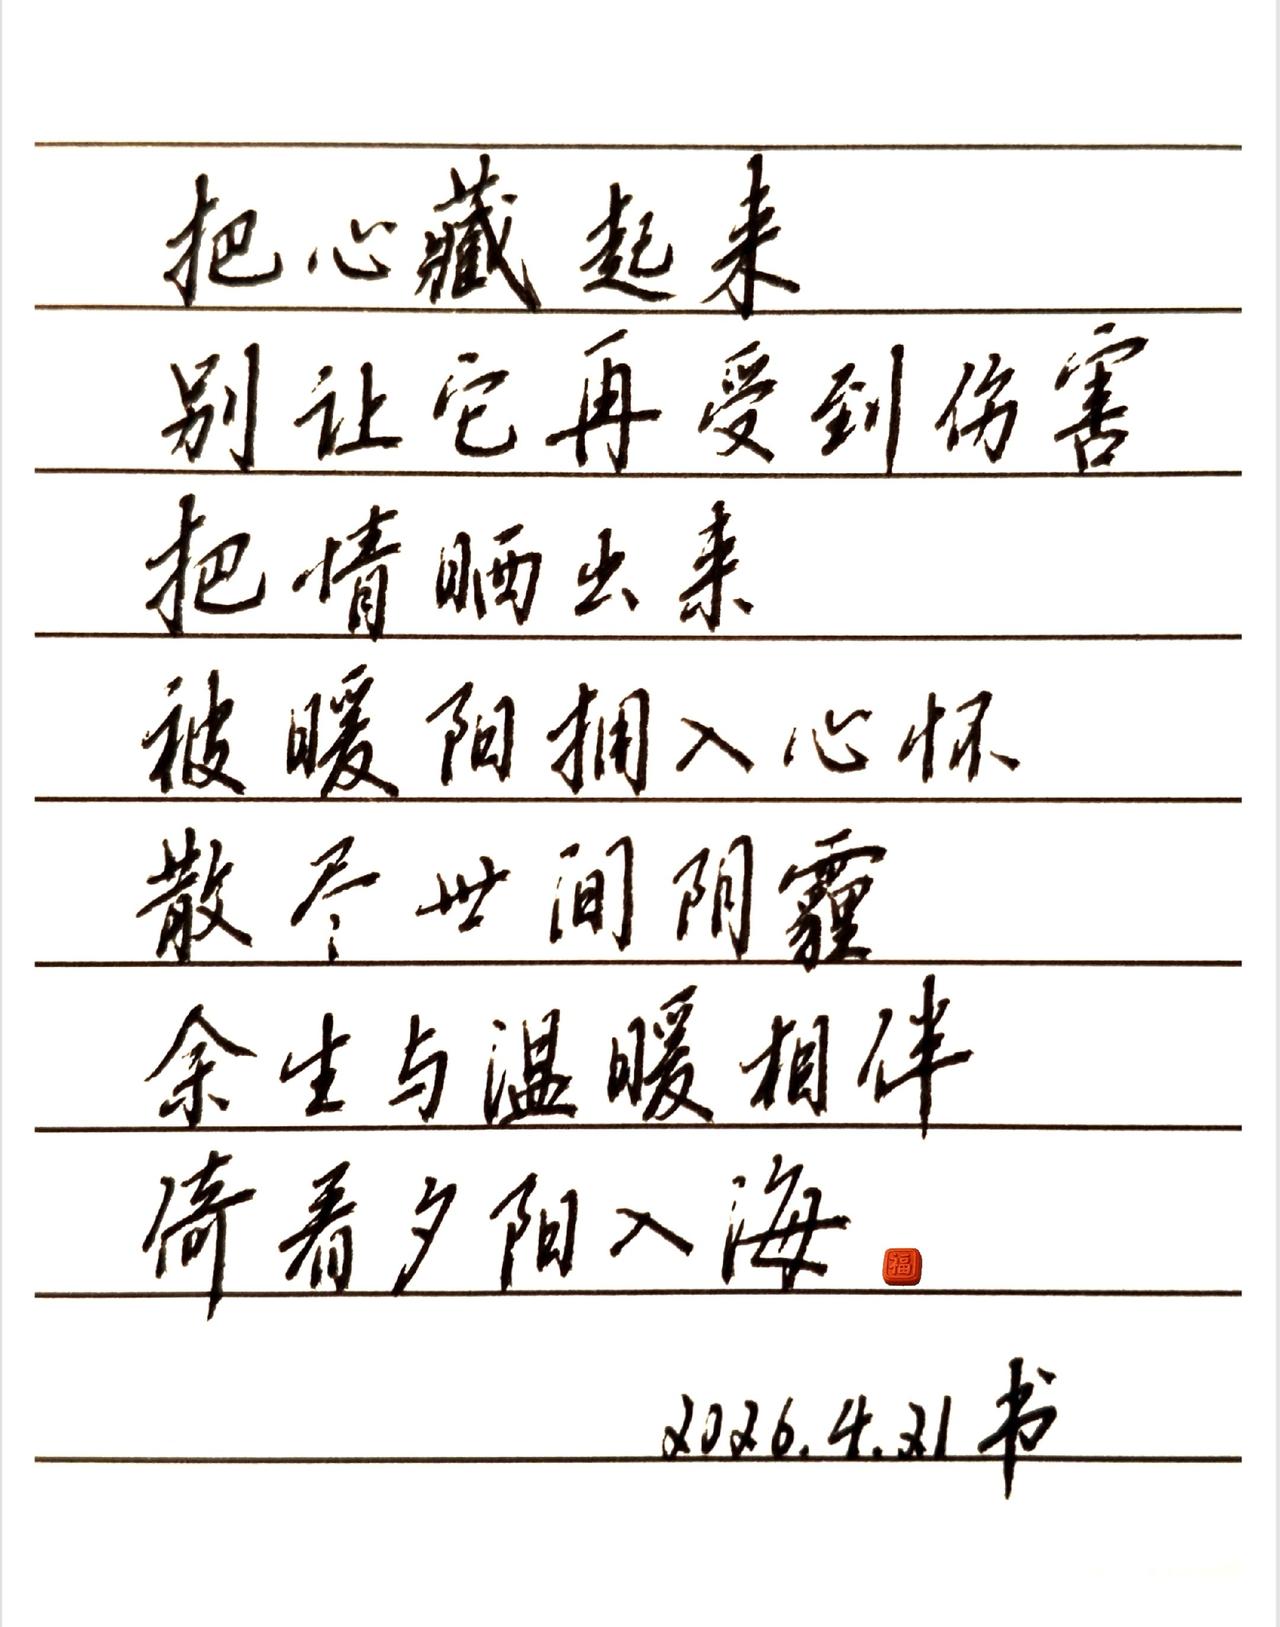 把心藏起来
别让它再受到伤害
把情晒出来
被暖阳拥入心怀
散尽世间阴霾
余生与温暖相伴
倚看夕阳入海
福
2026.4.21书